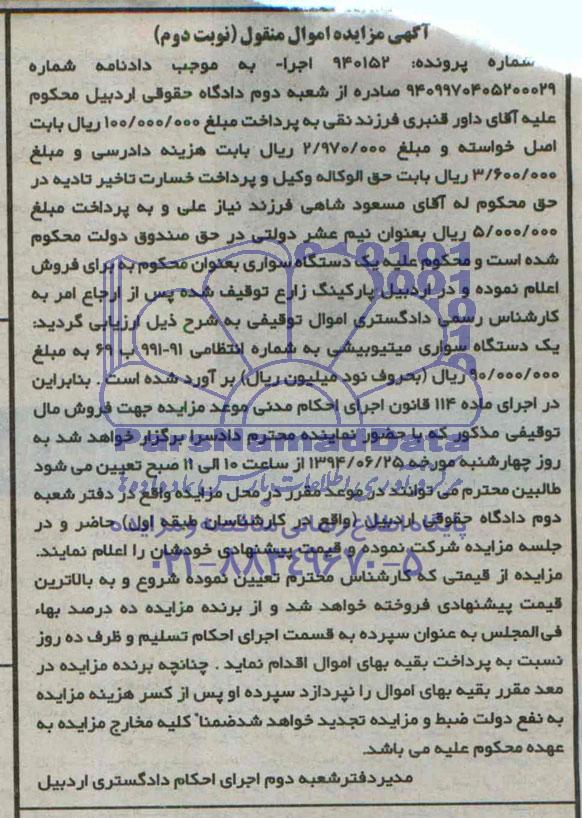 آگهی مزایده اموال منقول (نوبت دوم)
شماره پرونده: ۹۴۰۱۵۲ اجرا- به موجب دادنامه شماره
۹۴۰۹۹۷۰۴۰۵۲۰۰۰۲۹ صادره از شعبه دوم دادگاه حقوقی اردبیل محکوم
علیه آقای داور قنبری فرزند نقی به پرداخت مبلغ ۱۰۰/۰۰۰/۰۰۰ ریال بابت
اصل خواسته و مبلغ ۲/۹۷۰/۰۰۰ ریال بابت هزینه دادرسی و مبلغ
۳/۶۰۰/۰۰۰ ریال بابت حق الوکاله وکیل و پرداخت خسارت تاخیر تادیه در
حق محکوم له آقای مسعود شاهی فرزند نیاز علی و به پرداخت مبلغ
۵/۰۰۰/۰۰۰ ریال بعنوان نیم عشر دولتی در حق صندوق دولت محکوم
شده است و محکوم علیه یک دستگاه سواری بعنوان محکوم به برای فروش
اعلام نموده و در اردبیل پارکینگ زارع توقیف شده پس از ارجاع امر به
کارشناس رسمی دادگستری اموال توقیفی به شرح ذیل ارزیابی گردید:
یک دستگاه سواری میتیوبیشی به شماره انتظامی ۹۱-۹۹۱ ب ۶۹ به مبلغ
۹۰/۰۰۰/۰۰۰ ریال (بحروف نود میلیون ریال) بر آورد شده است . بنابراین
در اجرای ماده ۱۱۴ قانون اجرای احکام مدنی موعد مزایده جهت فروش مال
توقیفی مذکور که با حضور نماینده محترم دادسرا برگزار خواهد شد به
روز چهارشنبه مورخه ۱۳۹۴/۰۶/۲۵ از ساعت ۱۰ الی ۱۱ صبح تعیین می شود
طالبین محترم می توانند در موعد مقرر در محل مزایده واقع در دفتر شعبه
دوم دادگاه حقوقی اردبیل (واقع در کارشناسان طبقه اول) حاضر و در
جلسه مزایده شرکت نموده و قیمت پیشنهادی خودشان را اعلام نمایند.
مزایده از قیمتی که کارشناس محترم تعیین نموده شروع و به بالاترین
قیمت پیشنهادی فروخته خواهد شد و از برنده مزایده ده درصد بهاء
فی المجلس به عنوان سپرده به قسمت اجرای احکام تسلیم و ظرف ده روز
نسبت به پرداخت بقیه بهای اموال اقدام نماید . چنانچه برنده مزایده در
معد مقرر بقیه بهای اموال را نپردازد سپرده او پس از کسر هزینه مزایده
به نفع دولت ضبط و مزایده تجدید خواهد شدضمنا" کلیه مخارج مزایده به
عهده محکوم علیه می باشد.
مدیر دفتر شعبه دوم اجرای احکام دادگستری اردبیل
ParsNamadData
۰۲۱-۸۸۳۴۹۶۷۰-۵